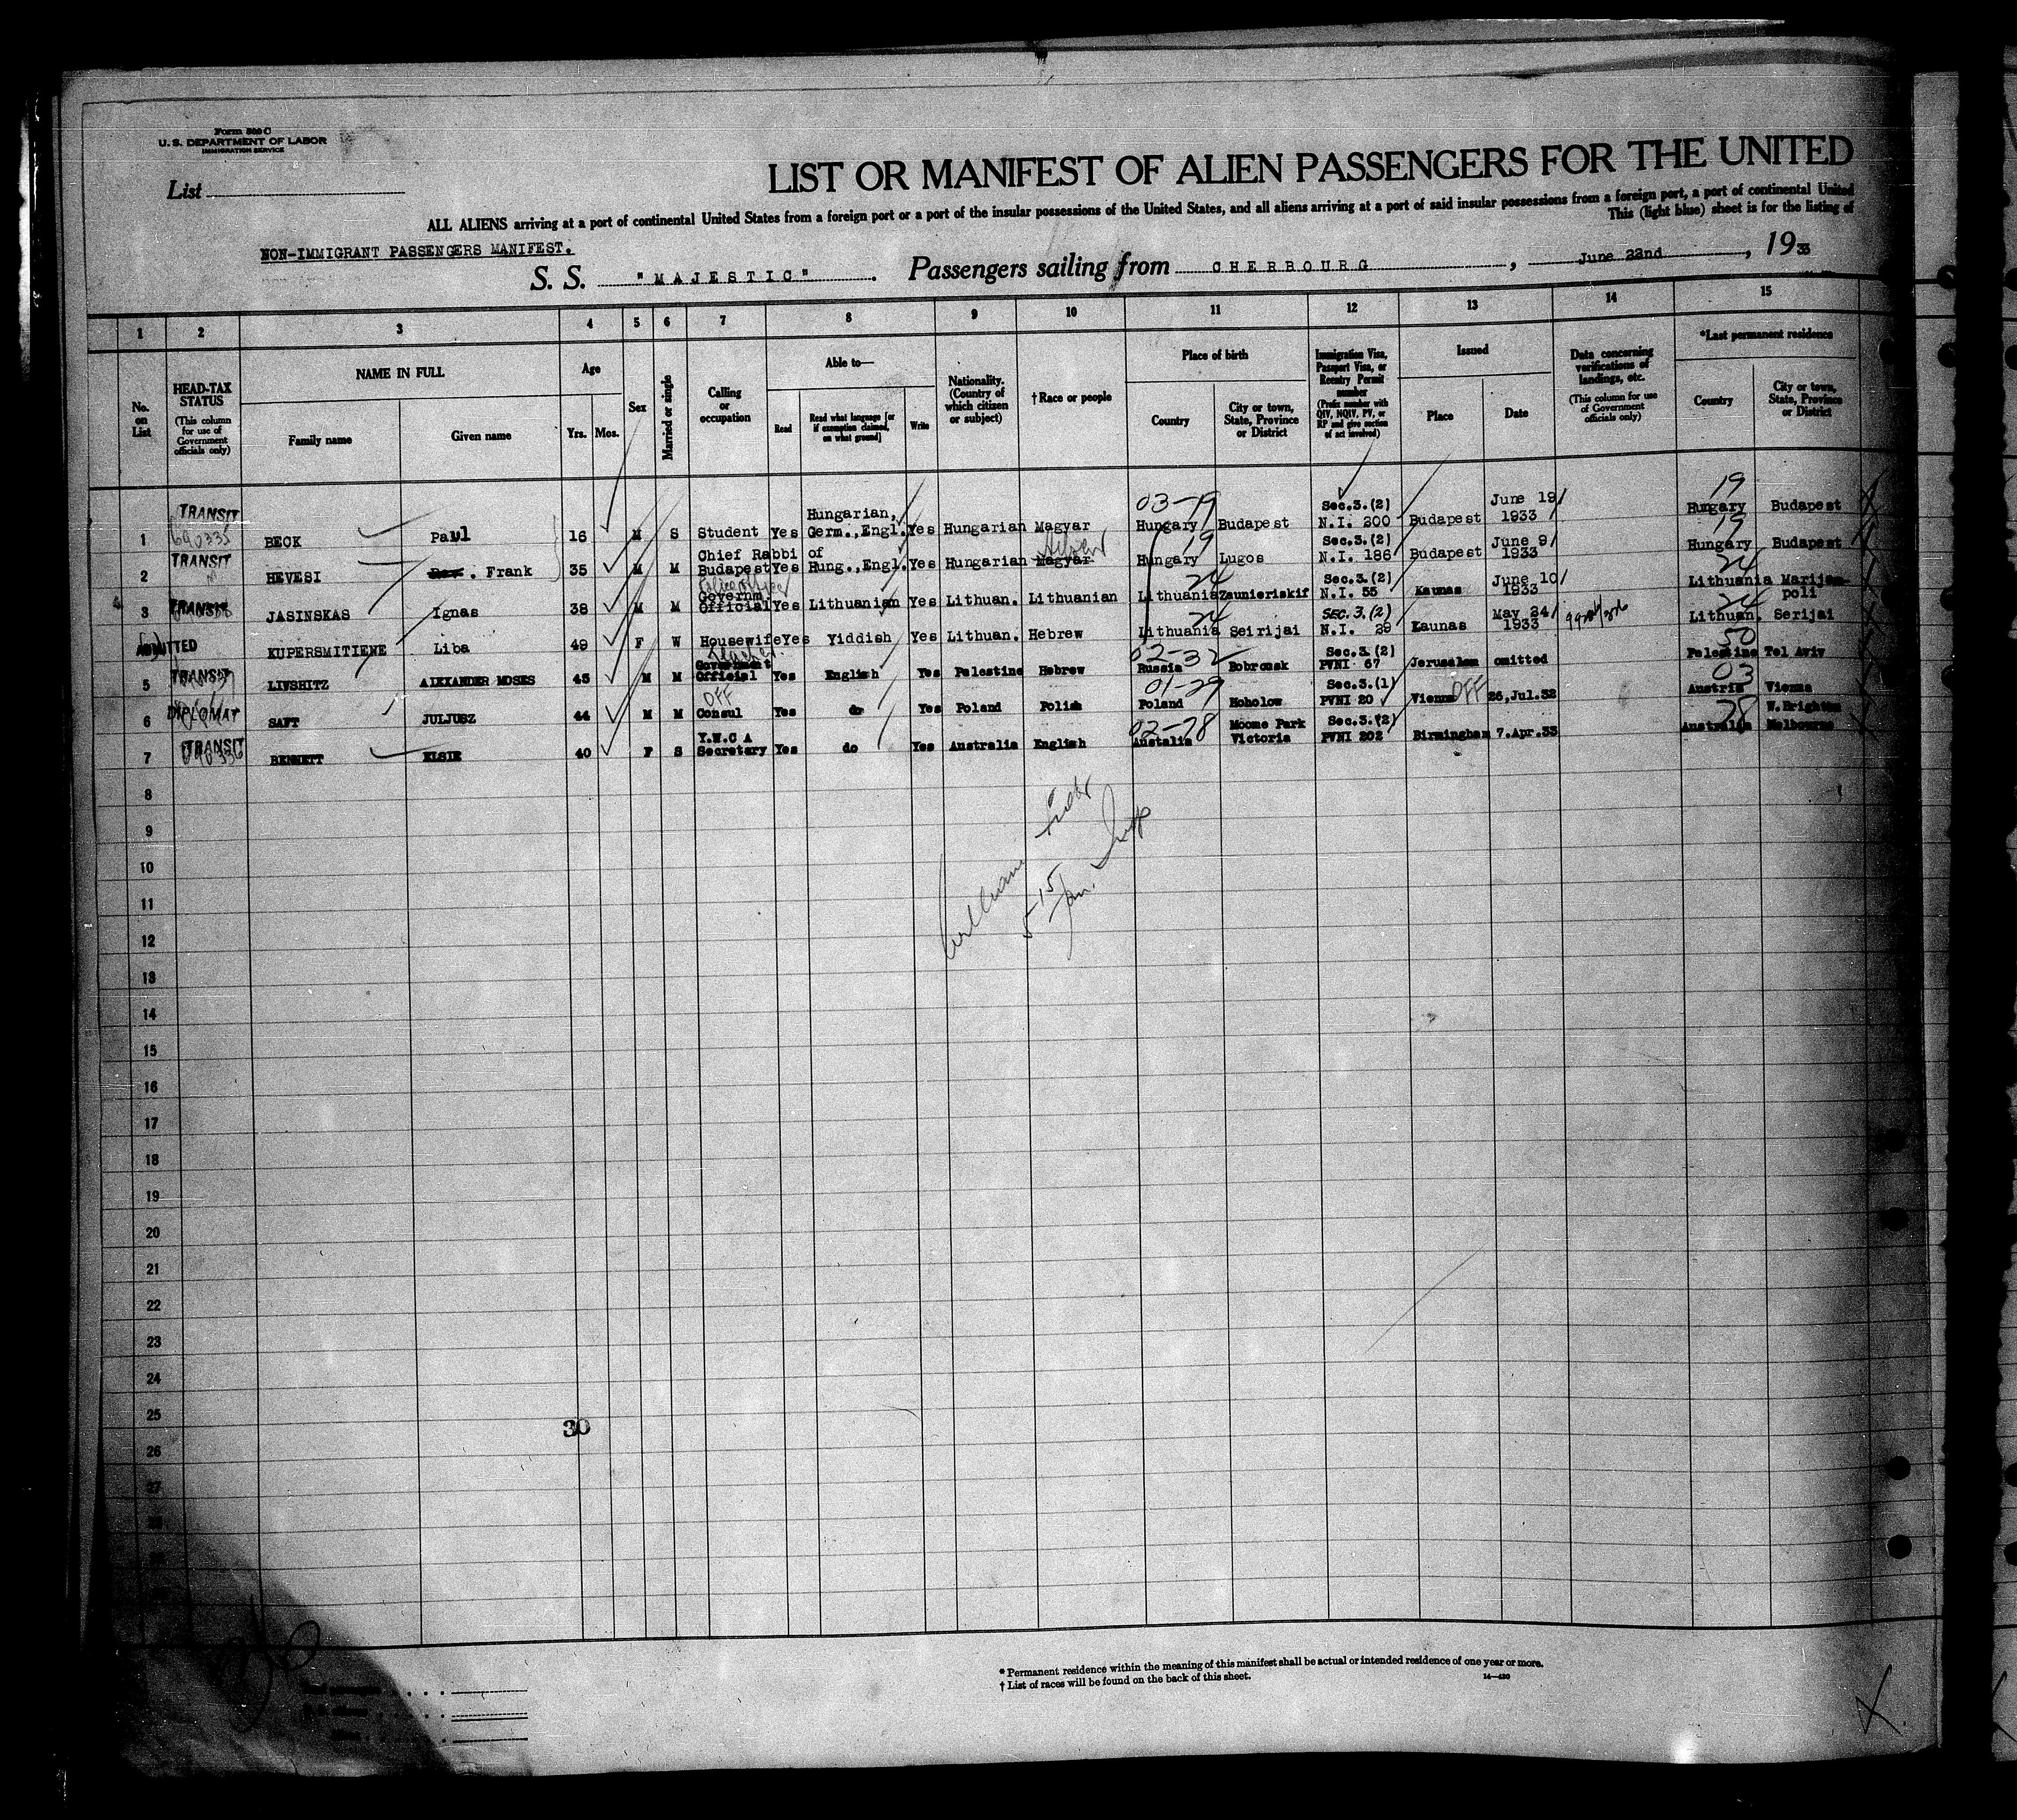 Form 500 C
U. S. DEPARTMENT OF LABOR
IMMIGRATION SERVICE
List
LIST OR MANIFEST OF ALIEN PASSENGERS FOR THE UNITED
ALL ALIENS arriving at a port of continental United States from a foreign port or a port of the insular possessions of the United States, and all aliens arriving at a port of said insular possessions from a foreign port, a port of continental United
This (light blue) sheet is for the listing of
NON-IMMIGRANT PASSENGERS MANIFEST.
S. S. "MAJESTIC" . Passengers sailing from CHERBOURG , June 22nd , 1933
1 2 3 4 5 6 7 8 9 10 11 12 13 14 15
No. on List
HEAD-TAX STATUS
(This column for use of Government officials only)
NAME IN FULL
Family name Given name
Age
Yrs. Mos.
Sex
Married or single
Calling or occupation
Able to—
Read
Read what language [or if exemption claimed, on what ground]
Write
Nationality. (Country of which citizen or subject)
†Race or people
Place of birth
Country
City or town, State, Province or District
Immigration Visa, Passport Visa, or Reentry Permit number
(Prefix number with QIV, NQIV, PV, or RP and give section of act involved)
Issued
Place Date
Data concerning verifications of landings, etc.
(This column for use of Government officials only)
*Last permanent residence
Country
City or town, State, Province or District
1 TRANSIT 690335 BECK Paul 16 M S Student Yes Hungarian, Germ.,Engl. Yes Hungarian Magyar 03-19 Hungary Budapest Sec.3.(2) N.I. 200 Budapest June 19/ 1933 19 Hungary Budapest
2 TRANSIT HEVESI Rev. Frank 35 M M Chief Rabbi of Budapest Yes Hung.,Engl. Yes Hungarian Magyar Hebrew 19 Hungary Lugos Sec.3.(2) N.I. 186 Budapest June 9/ 1933 19 Hungary Budapest
3 TRANSIT JASINSKAS Ignas 38 M M Governm. Official Yes Lithuanian Yes Lithuan. Lithuanian 24 Lithuania Zaunieriskif Sec.3.(2) N.I. 55 Kaunas June 10/ 1933 24 Lithuania Marijam-poli
ADMITTED KUPERSMITIENE Liba 49 F W Housewife Yes Yiddish Yes Lithuan. Hebrew 24 Lithuania Seirijai SEC.3.(2) N.I. 29 Kaunas May 24/ 1933 24 Lithuan. Serijai
5 TRANSIT LIVSHITZ ALEXANDER MOSES 45 M M Government Official Teacher. Yes English Yes Palestine Hebrew 02-32 Russia Bobrousk Sec.3.(2) PVNI 67 Jerusalem omitted 50 Palestine Tel Aviv
6 DIPLOMAT SAFT JULJUSZ 44 M M OFF Consul Yes do Yes Poland Polish 01-29 Poland Hoholow Sec.3.(1) PVNI 20 Vienna OFF 26,Jul.32 03 Austria Vienna
7 TRANSIT 690336 BENNETT ELSIE 40 F S Y.W.C A Secretary Yes do Yes Australia English 02-78 Austalia Moome Park Victoria Sec.3.(2) PVNI 202 Birmingham 7.Apr.33 78 Australia W.Brighton Melbourne
8
9
10
11
12
13
14
15
16
17
18
19
20
21
22
23
24
25
26
27
30
* Permanent residence within the meaning of this manifest shall be actual or intended residence of one year or more.
† List of races will be found on the back of this sheet.
14—430